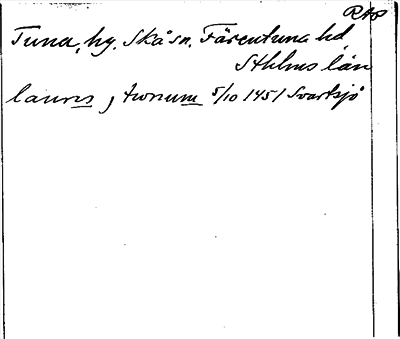 RAP
Tuna, hg. Skå sn. Färentuna hd,
Sthlms län
laurns j twnum 5/10 1451 Svartsjö